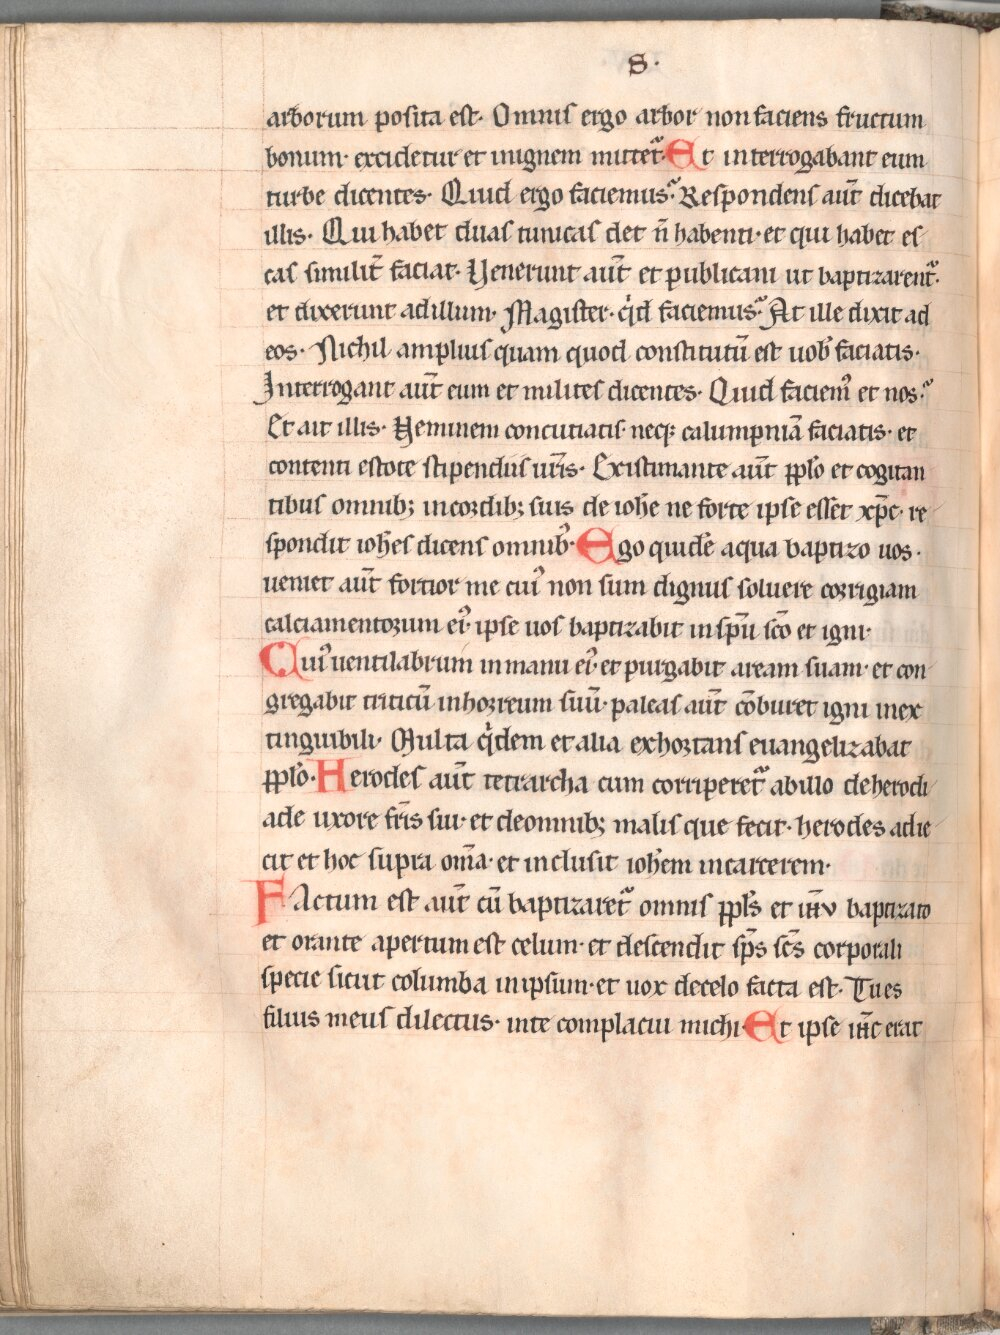 S·
arborum posita est· Omnis ergo arbor non faciens fructum
bonum· excidetur et inignem mittet᷑· Et interrogabant eum
turbe dicentes· Quid ergo faciemus? Respondens aut̄ dicebat
illis· Qui habet duas tunicas det n̄ habenti· et qui habet es
cas similit̄ faciat· Venerunt aut̄ et publicani ut baptizarent᷑·
et dixerunt adillum· Magister· qͥd faciemus? At ille dixit ad
eos· Nichil amplius quam quod constitutū est uob̄ faciatis·
Interrogant aut̄ eum et milites dicentes· Quid faciemꝰ et nos?
Et ait illis· Neminem concutiatis· neqꝫ calumpniā faciatis· et
contenti estote stipendiis ur̄is· Existimante aut̄ pplo̅ et cogitan
tibus omnibꝫ incordibꝫ suis de ioh̄e ne forte ipse esset xp̄c· re
spondit ioh̄es dicens omnibꝰ· Ego quidē aqua baptizo uos·
ueniet aut̄ fortior me cuiꝰ non sum dignus soluere corrigiam
calciamentorum eiꝰ· ipse uos baptizabit in sp̄u sc̄o et igni·
Cuiꝰ uentilabrum in manu eiꝰ· et purgabit aream suam· et con
gregabit triticū inhorreum suū· paleas aut̄ cōburet igni inex
tinguibili· Multa qͥdem et alia exhortans euangelizabat
pplo̅· Herodes aut̄ tetrarcha cum corriperet᷑ abillo deherodi
ade uxore fr̄is sui· et deomnibꝫ malis que fecit· herodes adie
cit et hoc supra om̄a· et inclusit ioh̄em incarcerem·
Factum est aut̄ cū baptizaret᷑ omnis ppl̄s et ih̄u baptizato
et orante apertum est celum· et descendit sp̄s sc̄s corporali
specie sicut columba inipsum· et uox decelo facta est· Tu es
filius meus dilectus· inte complacui michi· Et ipse ih̄c erat